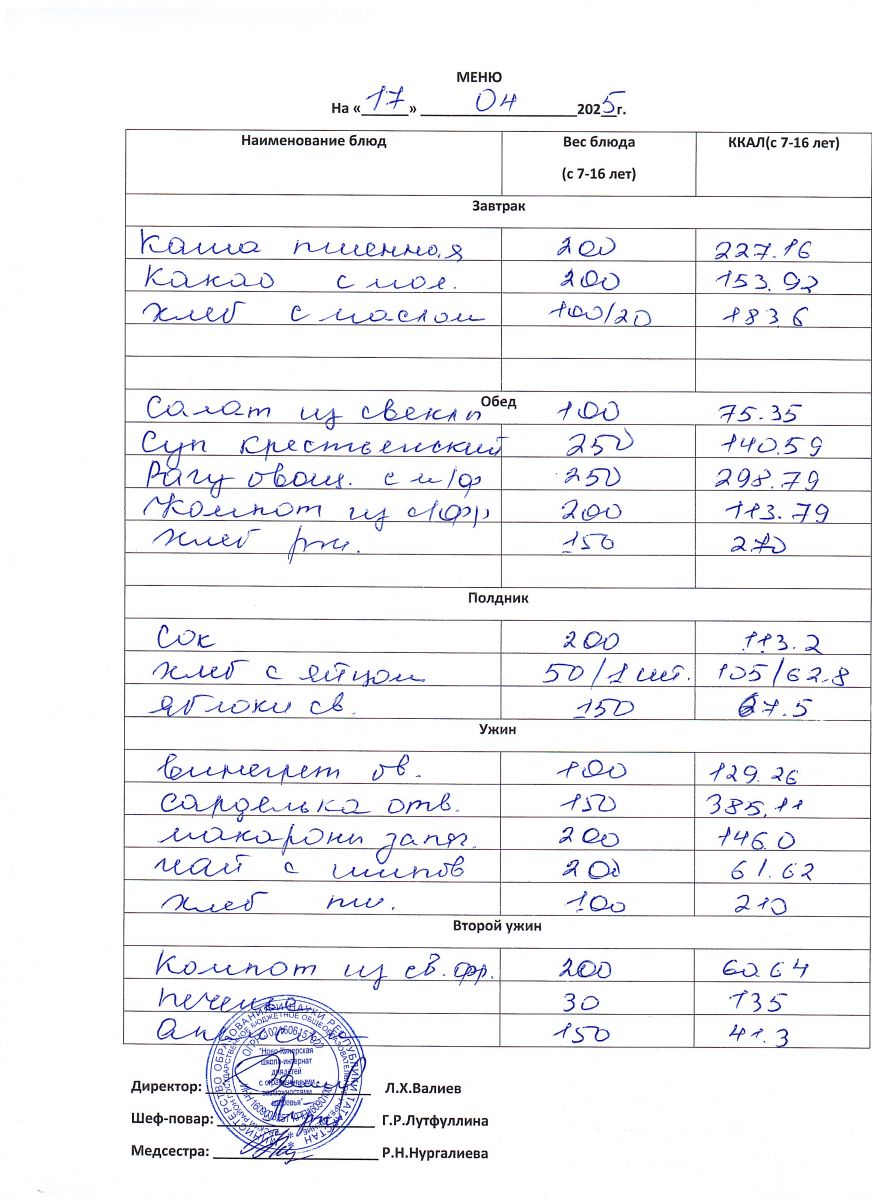 МЕНЮ
На «17» 04 2025г.
Наименование блюд Вес блюда (с 7-16 лет) ККАЛ(с 7-16 лет)
Завтрак
Каша пшенная 200 227.16
Какао с мол. 200 153.92
Хлеб с маслом 100/20 183.6
Обед
Салат из свеклы 100 75.35
Суп крестьенский 250 140.59
Рагу овощ. с м/ф 250 298.79
Компот из с/фр 200 113.79
Хлеб рж. 150 270
Полдник
Сок 200 113.2
Хлеб с яйцом 50/1 шт. 105/62.8
Яблоки св. 150 67.5
Ужин
Винегрет ов. 100 129.26
Сарделька отв. 150 385,11
макарони запяч. 200 146.0
Чай с шипов 200 61.62
Хлеб пш. 100 210
Второй ужин
Компот из св. фр. 200 60.64
Печенье 30 135
150 41.3
МИНИСТЕРСТВО ОБРАЗОВАНИЯ И НАУКИ РЕСПУБЛИКИ ТАТАРСТАН
"Ново-Кинерская
школа-интернат
для детей
с ограниченными
возможностями
здоровья"
Директор: Л.Х.Валиев
Шеф-повар: Г.Р.Лутфуллина
Медсестра: Р.Н.Нургалиева